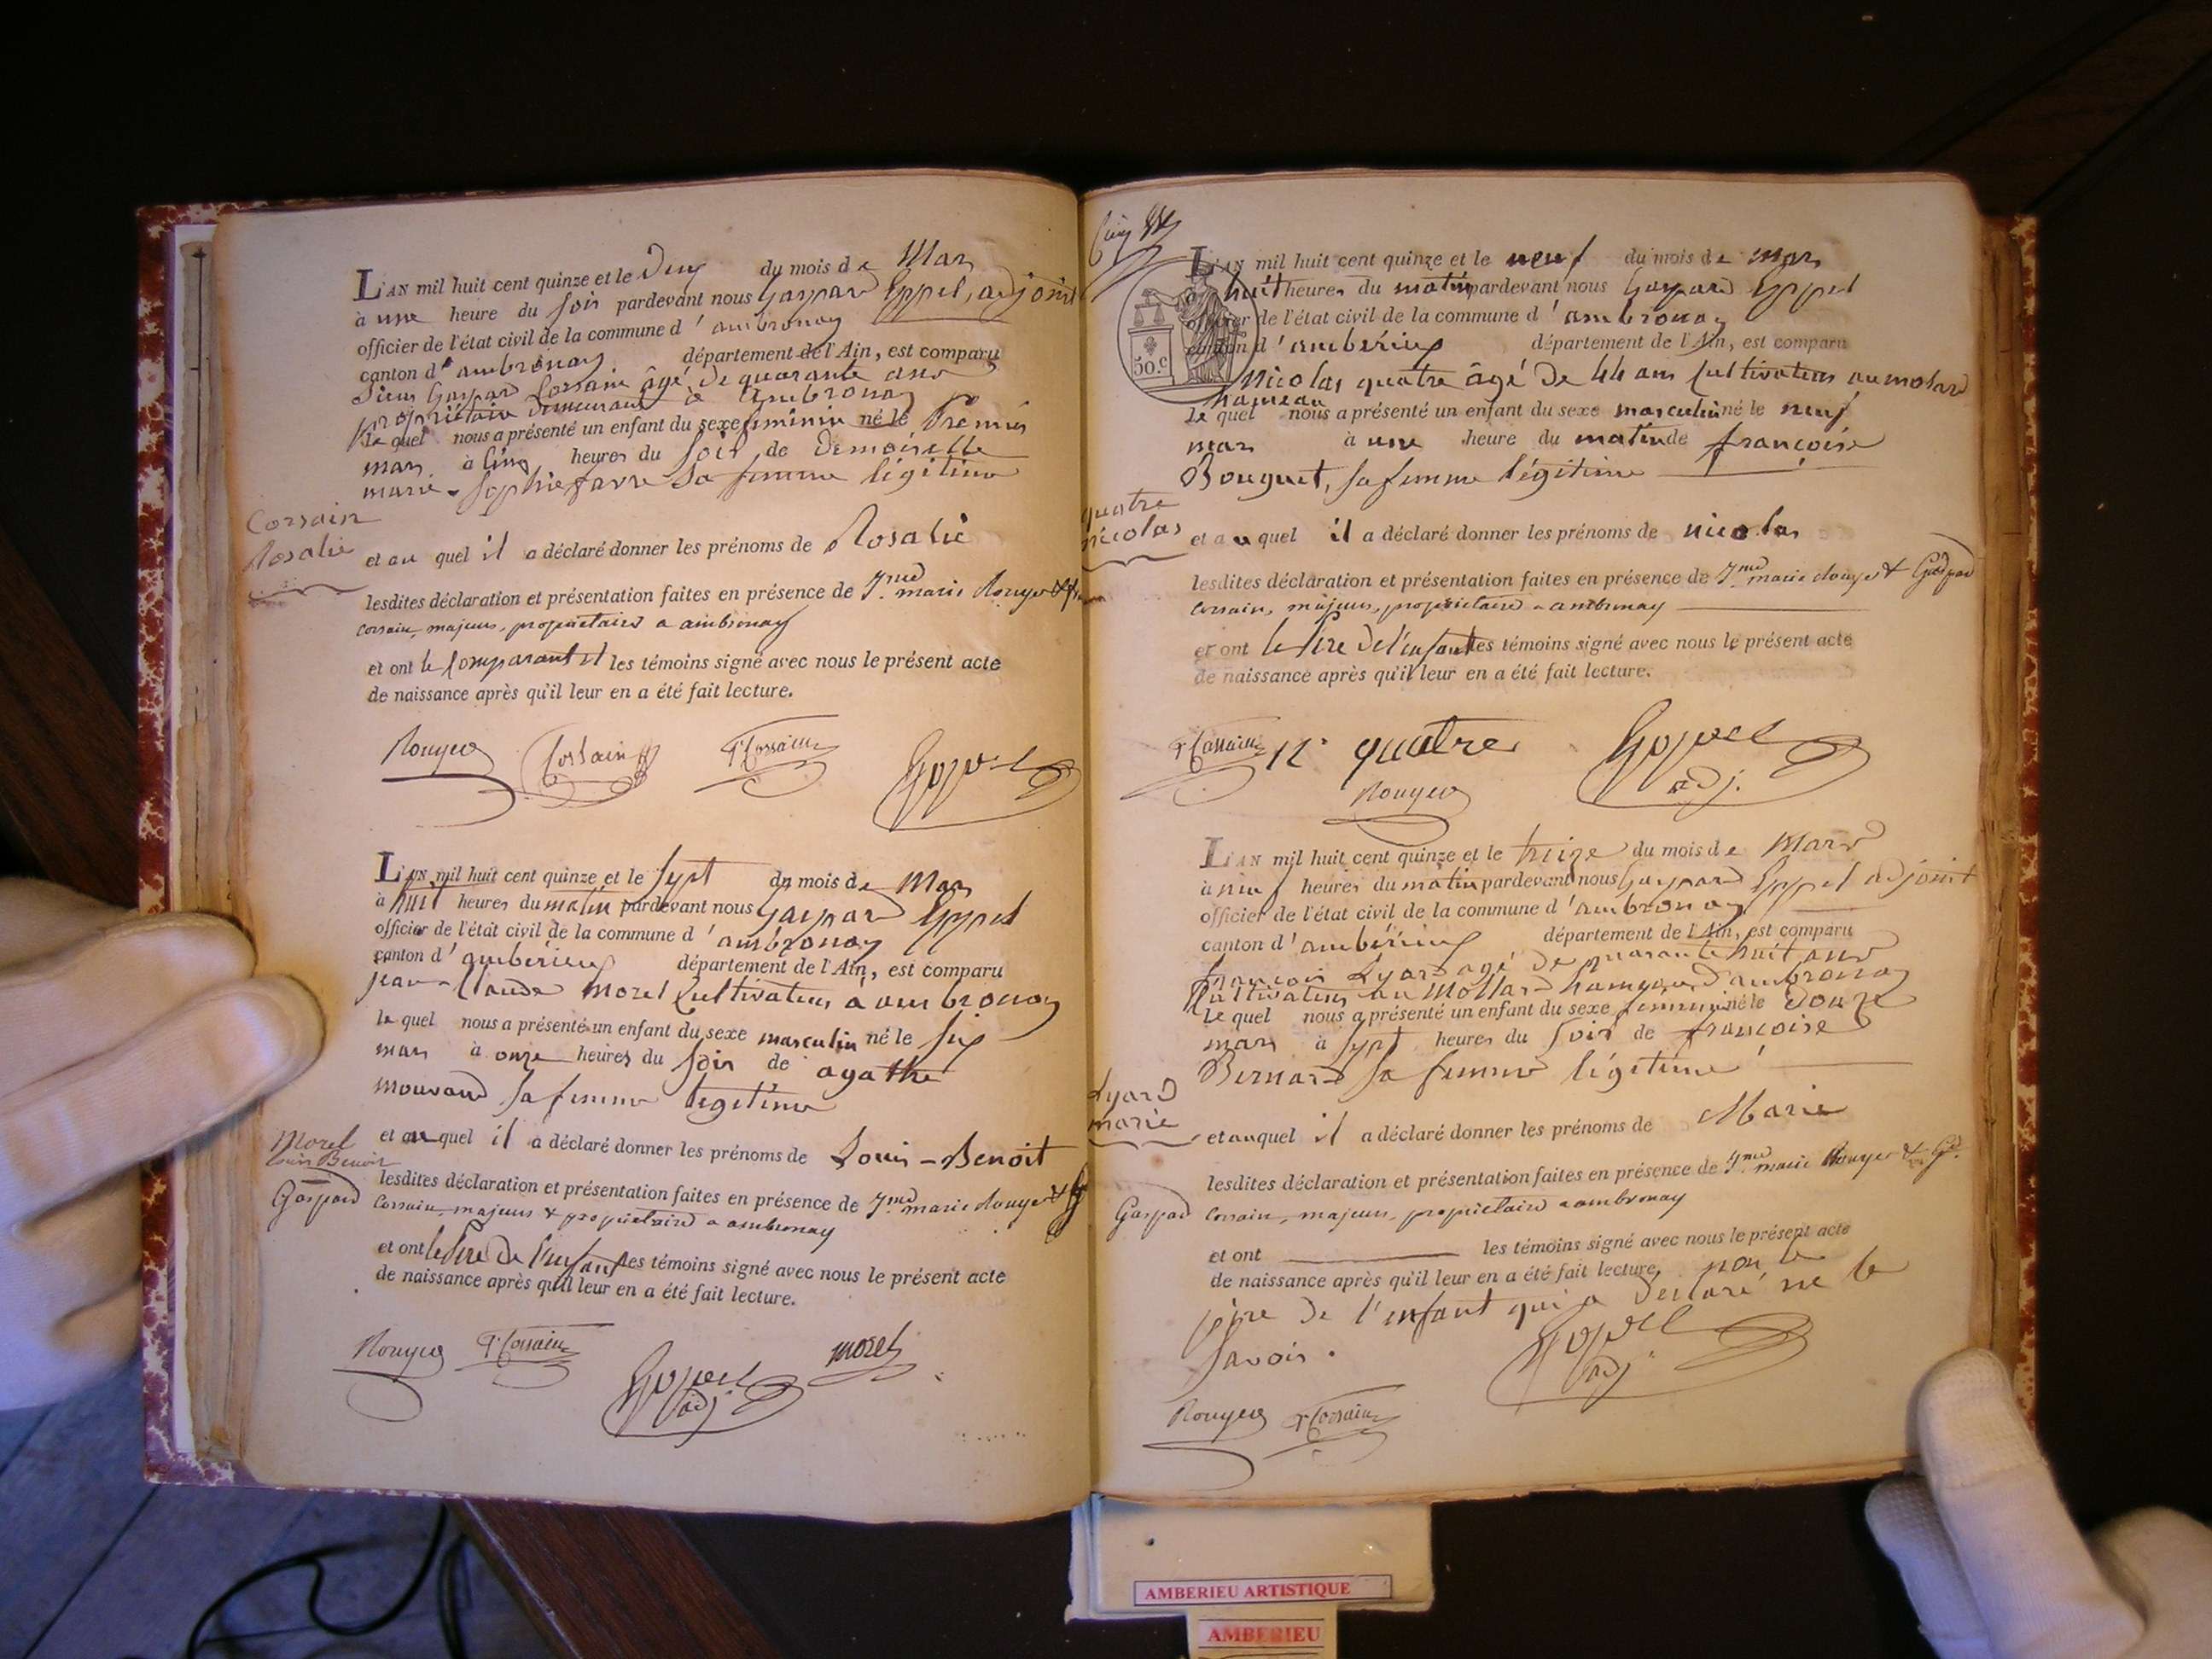 L'an mil huit cent quinze et le deux du mois de Mars
à une heure du soir pardevant nous Gaspard Eppel, adjoint
officier de l'état civil de la commune d'ambronay
canton d'ambronay département de l'Ain, est comparu
Sieur Gaspard Corsain âgé de quarante ans
propriétaire demeurant à Ambronay
le quel nous a présenté un enfant du sexe féminin né le Premier
mars à cinq heures du soir de Demoiselle
marie-Sophie favre sa femme légitime
Corsain
Rosalie
et au quel il a déclaré donner les prénoms de Rosalie
lesdites déclaration et présentation faites en présence de marie Rouyer &
corsain, majeurs, propriétaires a ambronay
et ont le comparant et les témoins signé avec nous le présent acte
de naissance après qu'il leur en a été fait lecture.
Rouyer Corsain Corsain Eppel
L'an mil huit cent quinze et le sept du mois de Mars
à huit heures du matin pardevant nous gaspard Eppel
officier de l'état civil de la commune d'ambronay
canton d'ambérieux département de l'Ain, est comparu
jean-Claude Morel Cultivateur à ambronay
le quel nous a présenté un enfant du sexe masculin né le six
mars à onze heures du soir de agathe
mouvand sa femme légitime
Morel
Louis Benoit
et au quel il a déclaré donner les prénoms de Louis-Benoit
lesdites déclaration et présentation faites en présence de marie Rouyer &
Gaspard Corsain, majeurs & propriétaires a ambronay
et ont le père de l'enfant les témoins signé avec nous le présent acte
de naissance après qu'il leur en a été fait lecture.
Rouyer Corsain Eppel adj morel
L'an mil huit cent quinze et le neuf du mois de mars
à huit heures du matin pardevant nous Gaspard Eppel
officier de l'état civil de la commune d'ambronay
canton d'ambérieux département de l'Ain, est comparu
50 c
Nicolas quatre âgé de 44 ans Cultivateur au molard
hameau
le quel nous a présenté un enfant du sexe masculin né le neuf
mars à une heure du matin de françoise
Bouquet, sa femme légitime
quatre
nicolas
et au quel il a déclaré donner les prénoms de nicolas
lesdites déclaration et présentation faites en présence de marie Rouyer & Gaspard
Corsain, majeurs, propriétaires a ambronay
et ont le père de l'enfant les témoins signé avec nous le présent acte
de naissance après qu'il leur en a été fait lecture.
Corsain quatre Eppel
Rouyer adj.
L'an mil huit cent quinze et le treize du mois de Mars
à neuf heures du matin pardevant nous Gaspard Eppel adjoint
officier de l'état civil de la commune d'ambronay
canton d'ambérieux département de l'Ain, est comparu
françois Lyard agé de quarante huit ans
Cultivateur au Mollard hameau d'ambronay
le quel nous a présenté un enfant du sexe feminin né le douze
mars à sept heures du soir de françoise
Bernard sa femme légitime
Lyard
marie
et au quel il a déclaré donner les prénoms de Marie
lesdites déclaration et présentation faites en présence de marie Rouyer &
Gaspard Corsain, majeurs, propriétaires a ambronay
et ont les témoins signé avec nous le présent acte
de naissance après qu'il leur en a été fait lecture, non le
père de l'enfant qui a déclaré ne le
savoir.
Eppel
adj
Rouyer Corsain
AMBERIEU ARTISTIQUE
AMBERIEU